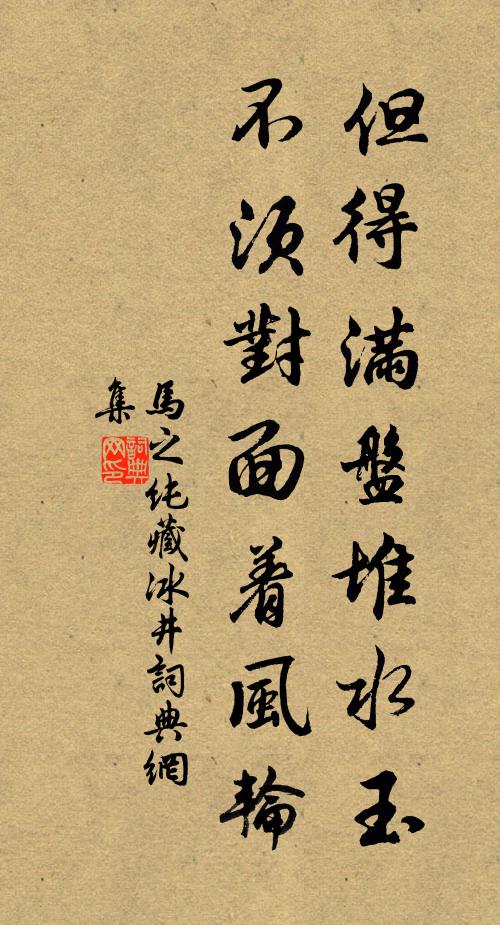 但得滿盤堆水玉
不須對面着風輪
馬之純藏冰井詞典網
集
詞典
网印